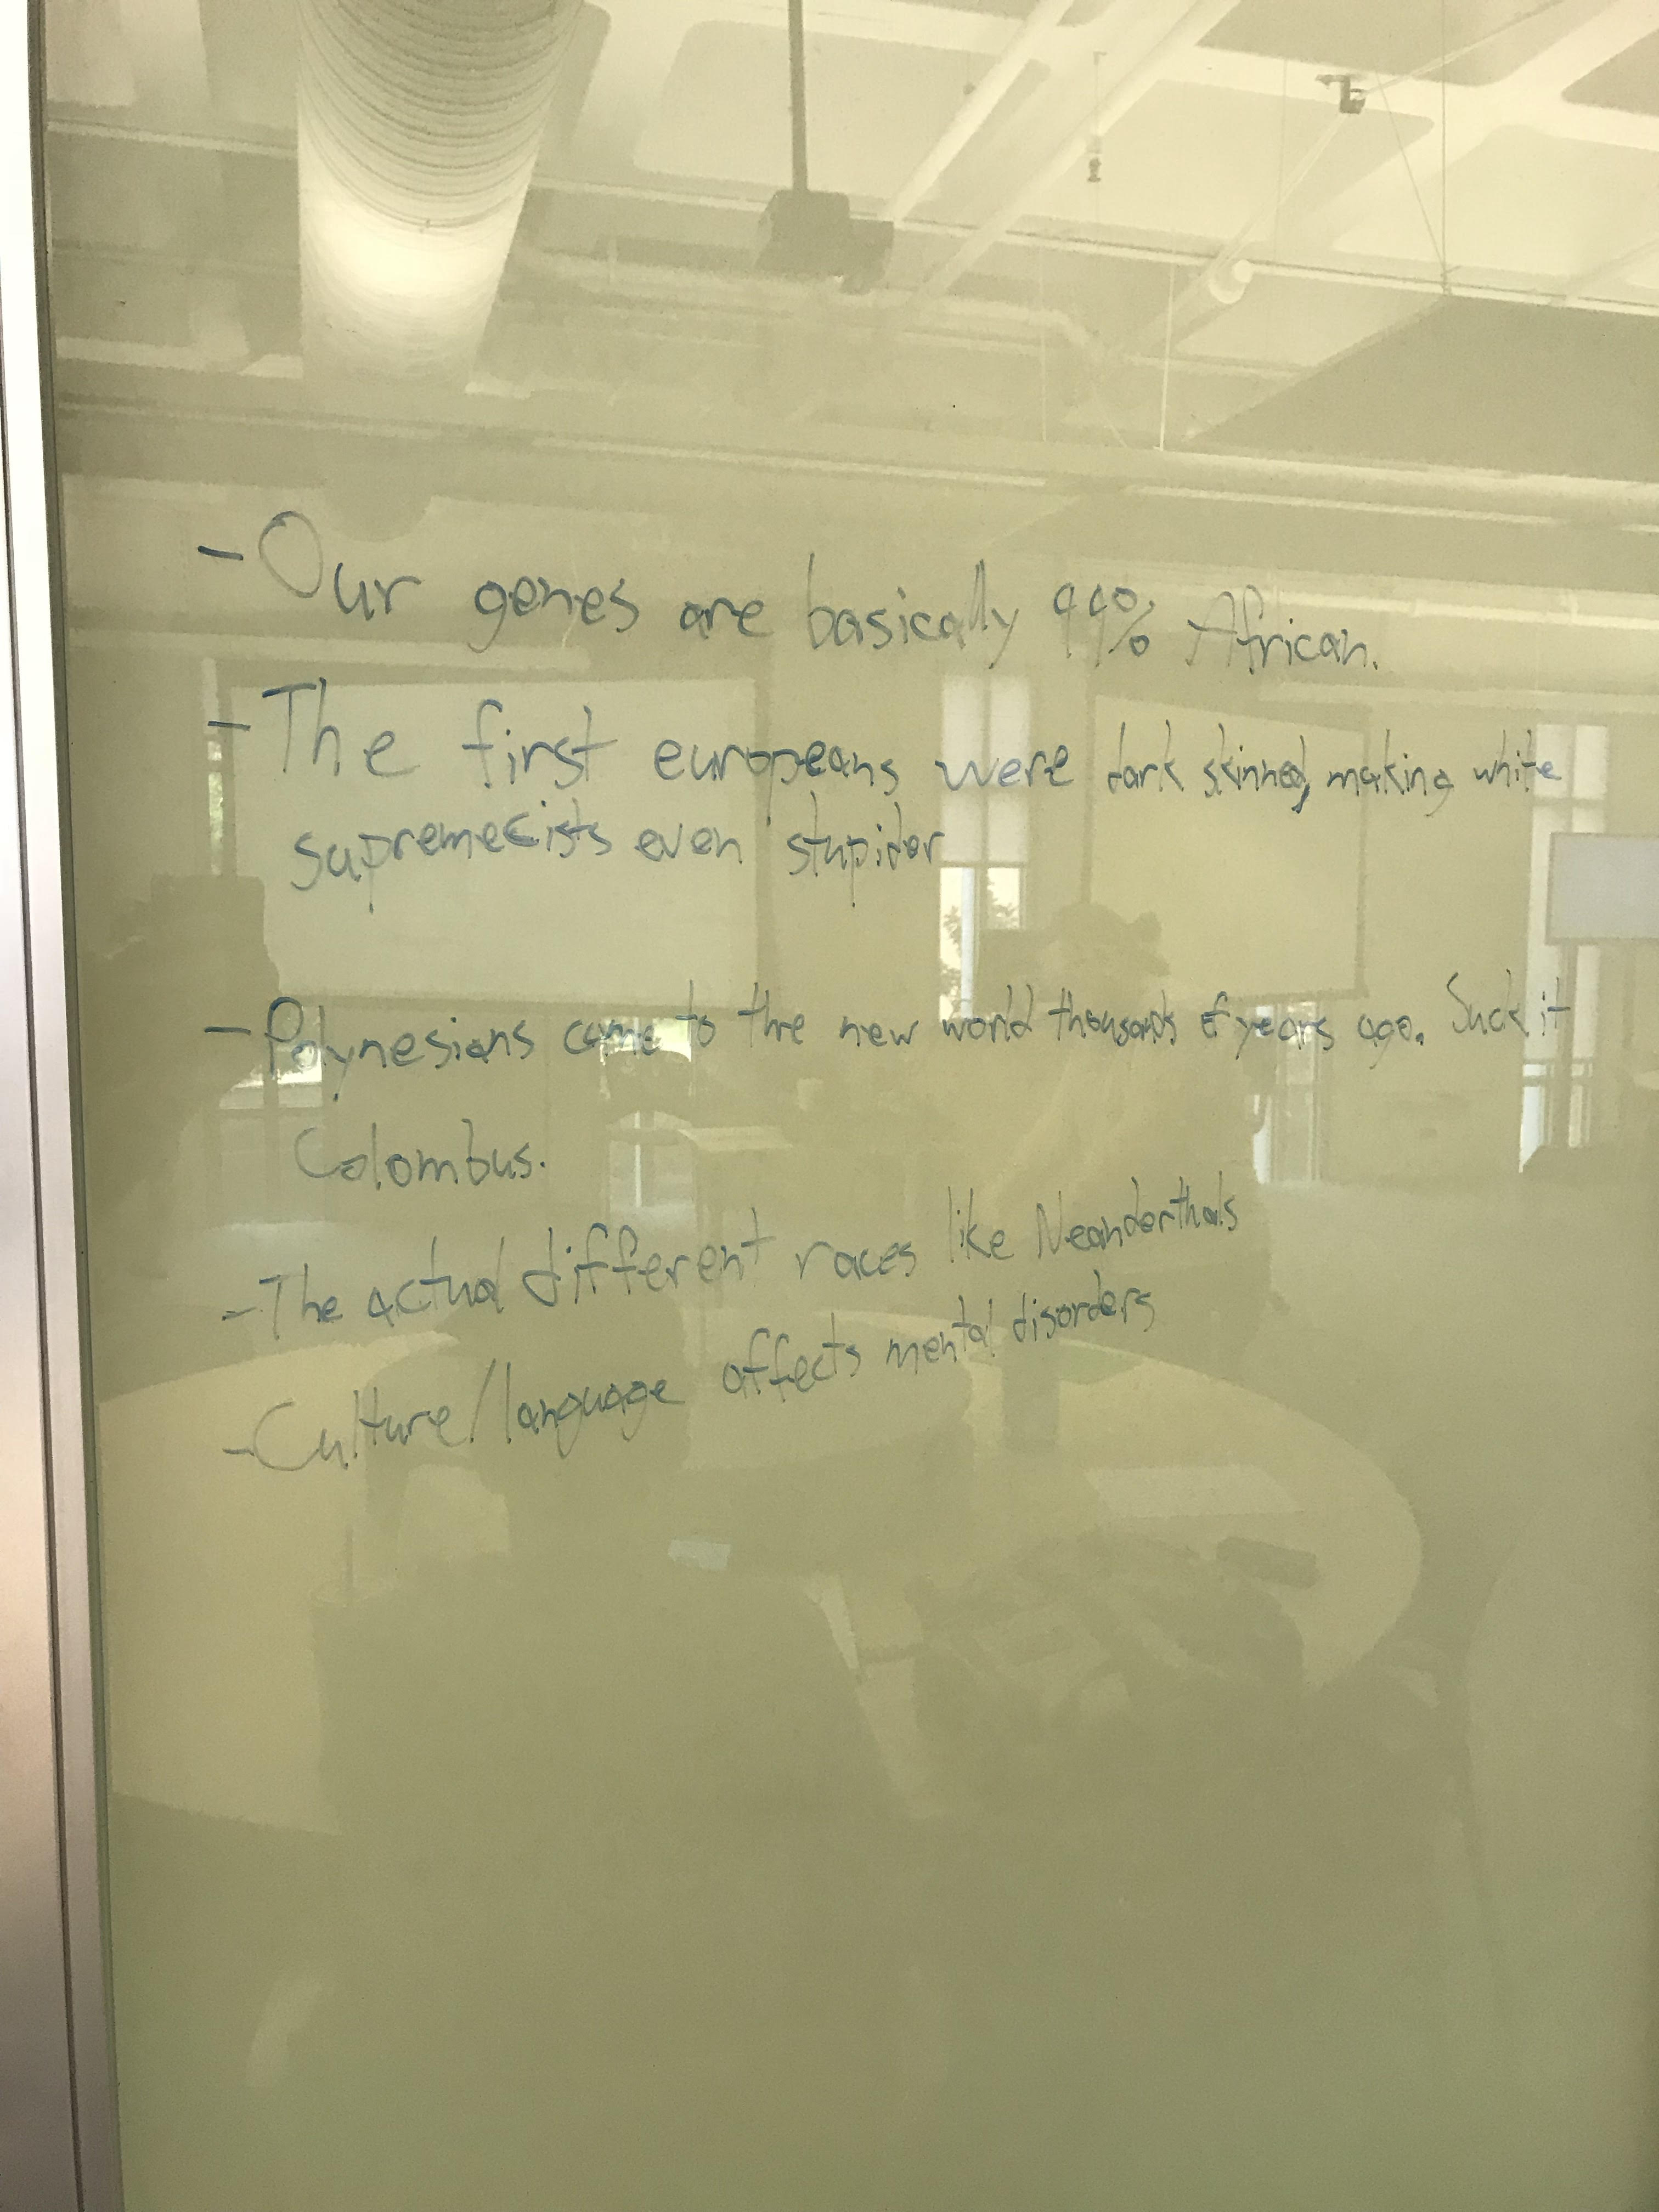 - Our genes are basically 99% African.
- The first europeans were dark skinned, making white
supremecists even stupider
- Polynesians came to the new world thousands of years ago. Suck it
Colombus.
- The actual different races like Neanderthals
- Culture/language affects mental disorders